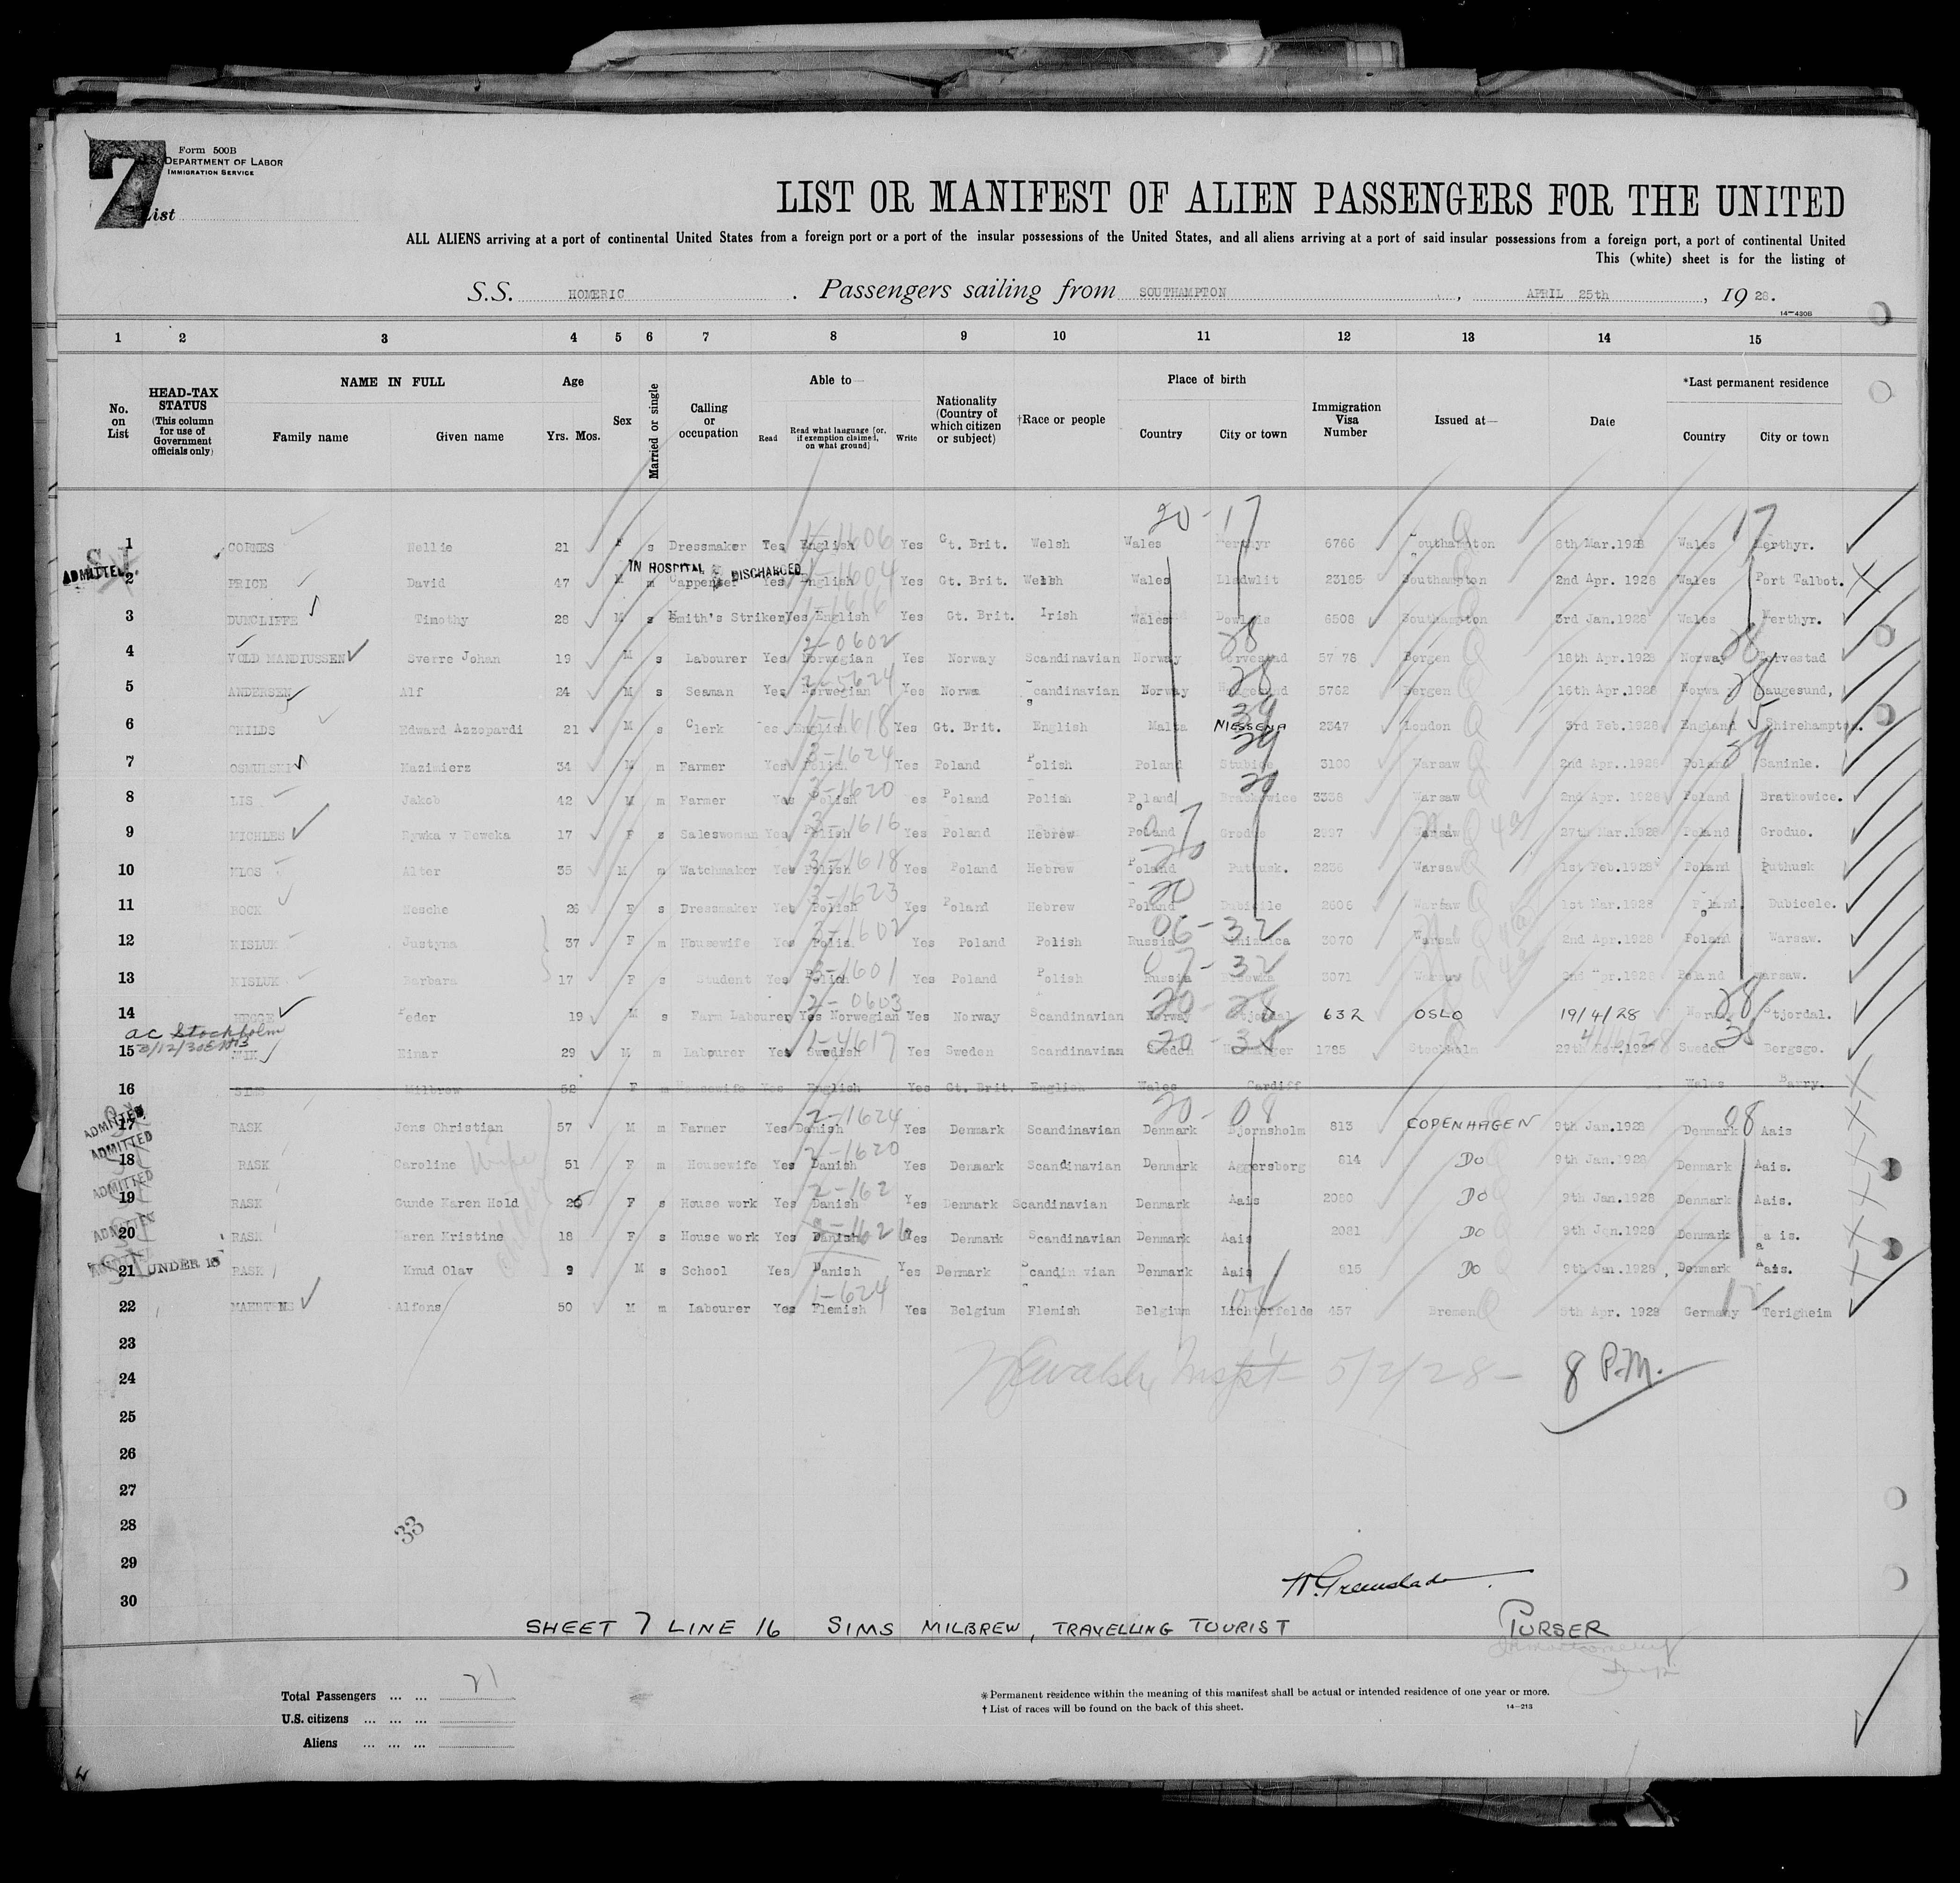 7
Form 500B
U.S. DEPARTMENT OF LABOR
IMMIGRATION SERVICE
List
LIST OR MANIFEST OF ALIEN PASSENGERS FOR THE UNITED
ALL ALIENS arriving at a port of continental United States from a foreign port or a port of the insular possessions of the United States, and all aliens arriving at a port of said insular possessions from a foreign port, a port of continental United
This (white) sheet is for the listing of
S.S. HOMERIC. Passengers sailing from SOUTHAMPTON, APRIL 25th, 1928.
14—430B
1 2 3 4 5 6 7 8 9 10 11 12 13 14 15
No. on List
HEAD-TAX STATUS (This column for use of Government officials only)
NAME IN FULL Family name Given name
Age Yrs. Mos.
Sex
Married or single
Calling or occupation
Able to— Read Read what language [or, if exemption claimed, on what ground] Write
Nationality (Country of which citizen or subject)
†Race or people
Place of birth Country City or town
Immigration Visa Number
Issued at—
Date
*Last permanent residence Country City or town
20-17 17
1 CORNES Nellie 21 F s Dressmaker Yes English 1-1606 Yes Gt. Brit. Welsh Wales Merthyr 6766 Southampton 8th Mar.1928 Wales Merthyr.
SI ADMITTED
IN HOSPITAL DISCHARGED
2 PRICE David 47 M m Carpenter Yes English 1604 Yes Gt. Brit. Welsh Wales Lladwlit 23185 Southampton 2nd Apr. 1928 Wales Port Talbot.
3 DUNCLIFFE Timothy 28 M s Smith's Striker Yes English 1-1616 Yes Gt. Brit. Irish Wales Dowlais 6508 Southampton 3rd Jan.1928 Wales Merthyr.
4 VOLD MANDIUSSEN Sverre Johan 19 M s Labourer Yes Norwegian 2-0602 Yes Norway Scandinavian Norway 28 Torvestad 57 78 Bergen 18th Apr.1928 Norway 28 Torvestad
5 ANDERSEN Alf 24 M s Seaman Yes Norwegian 2-5624 Yes Norwa Scandinavian Norway 28 Haugesund 5762 Bergen 16th Apr.1928 Norwa 28 Haugesund,
6 CHILDS Edward Azzopardi 21 M s Clerk Yes English 1-1618 Yes Gt. Brit. English Malta MESSENA 2347 London 3rd Feb.1928 England 15 Shirehampton.
7 OSMULSKI Kazimierz 34 M m Farmer Yes Polish 3-1624 Yes Poland Polish Poland 29 Stubice 3100 Warsaw 2nd Apr..1928 Poland 29 Saninle.
8 LIS Jakob 42 M m Farmer Yes Polish 3-1620 es Poland Polish Poland 20 Bratkowice 3338 Warsaw 2nd Apr. 1928 Poland Bratkowice.
9 MICHLES Rywka v Deweka 17 F s Saleswoman Yes Polish 3-1616 Yes Poland Hebrew Poland 07 Groduo 2997 Warsaw 27th Mar.1928 Poland Groduo.
10 KLOS Alter 35 M m Watchmaker Yes Polish 3-1618 Yes Poland Hebrew Poland 20 Puthusk. 2236 Warsaw 1st Feb.1928 Poland Puthusk
11 BOCK Nesche 26 F s Dressmaker Yes Polish 3-1623 Yes Poland Hebrew Poland 20 Dubicile 2606 Warsaw 1st Mar.1928 Poland Dubicele.
12 KISLUK Justyna 37 F m Housewife Yes Polis 1602 Yes Poland Polish Russia 06-32 3070 Warsaw 2nd Apr.1928 Poland Warsaw.
13 KISLUK Barbara 17 F s Student Yes Polish 3-1601 Yes Poland Polish Russia 07-32 3071 Warsaw 2nd Apr.1928 Poland Warsaw.
14 HEGGE Peder 19 M s Farm Labourer Yes Norwegian 2-0603 Yes Norway Scandinavian Norway 20-28 Stjordal 632 OSLO 19/4/28 Norway 28 Stjordal.
ac Stockholm
15 WIK Einar 29 M m Labourer Yes Swedish 1-4617 Yes Sweden Scandinavian Sweden 20-35 1785 Stockholm 29th Nov.1927 Sweden 35 Bergsgo.
16 SIMS Milbrew 52 F m Housewife Yes English Yes Gt. Brit. English Wales Cardiff Wales Barry.
ADMITTED 17 RASK Jens Christian 57 M m Farmer Yes Danish 2-1624 Yes Denmark Scandinavian Denmark 20-08 Bjornsholm 813 COPENHAGEN 9th Jan.1928 Denmark 08 Aais
ADMITTED 18 RASK Caroline Wife 51 F m Housewife Yes Danish 2-1620 Yes Denmark Scandinavian Denmark Aggersborg 814 DO 9th Jan.1928 Denmark Aais.
ADMITTED 19 RASK Gunde Karen Hold 25 F s House work Yes Danish 2-162 Yes Denmark Scandinavian Denmark Aais 2080 DO 9th Jan.1928 Denmark Aais.
ADMITTED 20 RASK Karen Kristine 18 F s House work Yes Danish 2-1626 Yes Denmark Scandinavian Denmark Aais 2081 DO 9th Jan.1928 Denmark Aais.
21 UNDER 16 RASK Knud Olav 9 M s School Yes Danish Yes Denmark Scandinavian Denmark Aais 815 DO 9th Jan.1928, Denmark Aais.
22 MAERTENS Alfons 50 M m Labourer Yes Flemish 1-624 Yes Belgium Flemish Belgium Lichterfelde 457 Bremen 5th Apr. 1928 Germany 12 Terigheim
23
24 Inspt 5/2/28- 8 P.M.
25
26
27
28 33
29
30 W. Greenslade
SHEET 7 LINE 16 SIMS MILBREW, TRAVELLING TOURIST PURSER
Total Passengers ... ... 21
U.S. citizens ... ... ...
Aliens ... ... ...
* Permanent residence within the meaning of this manifest shall be actual or intended residence of one year or more.
† List of races will be found on the back of this sheet.
14—213